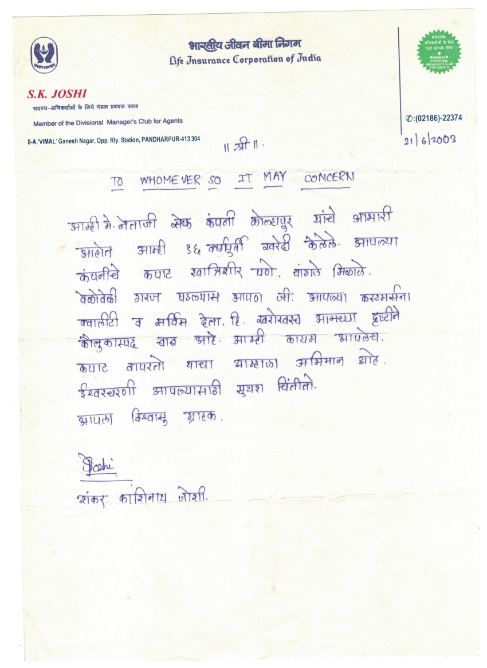 भारतीय जीवन बीमा निगम
Life Insurance Corporation of India
S.K. JOSHI
सदस्य-अभिकर्ताओं के लिये मंडल प्रबंधक क्लब
Member of the Divisional Manager's Club for Agents
8-A, 'VIMAL' Ganesh Nagar, Opp. Rly. Station, PANDHARPUR-413 304
✆:(02186)-22374
21/6/2003
॥ श्री ॥
TO WHOMEVER SO IT MAY CONCERN
आम्ही मे. नेताजी सेफ कंपनी कोल्हापूर यांचे आभारी
आहोत आम्ही १६ वर्षापुर्वी खरेदी केलेले. आपल्या
कंपनीचे कपाट खात्रिशीर पणे. चांगले मिळाले.
वेळोवेळी गरज पडल्यास आपण जी. आपल्या कस्टमर्सना
क्वालीटी व सर्विस देता. हि. खरोखरच आमच्या दृष्टीने
कौतुकास्पद बाब आहे. आम्ही कायम आपलेच.
कपाट वापरतो याचा आम्हाला अभिमान आहे.
ईश्वरचरणी आपल्यासाठी सुयश चिंतीतो.
आपला विश्वासु ग्राहक.
Joshi
शंकर काशिनाथ जोशी.